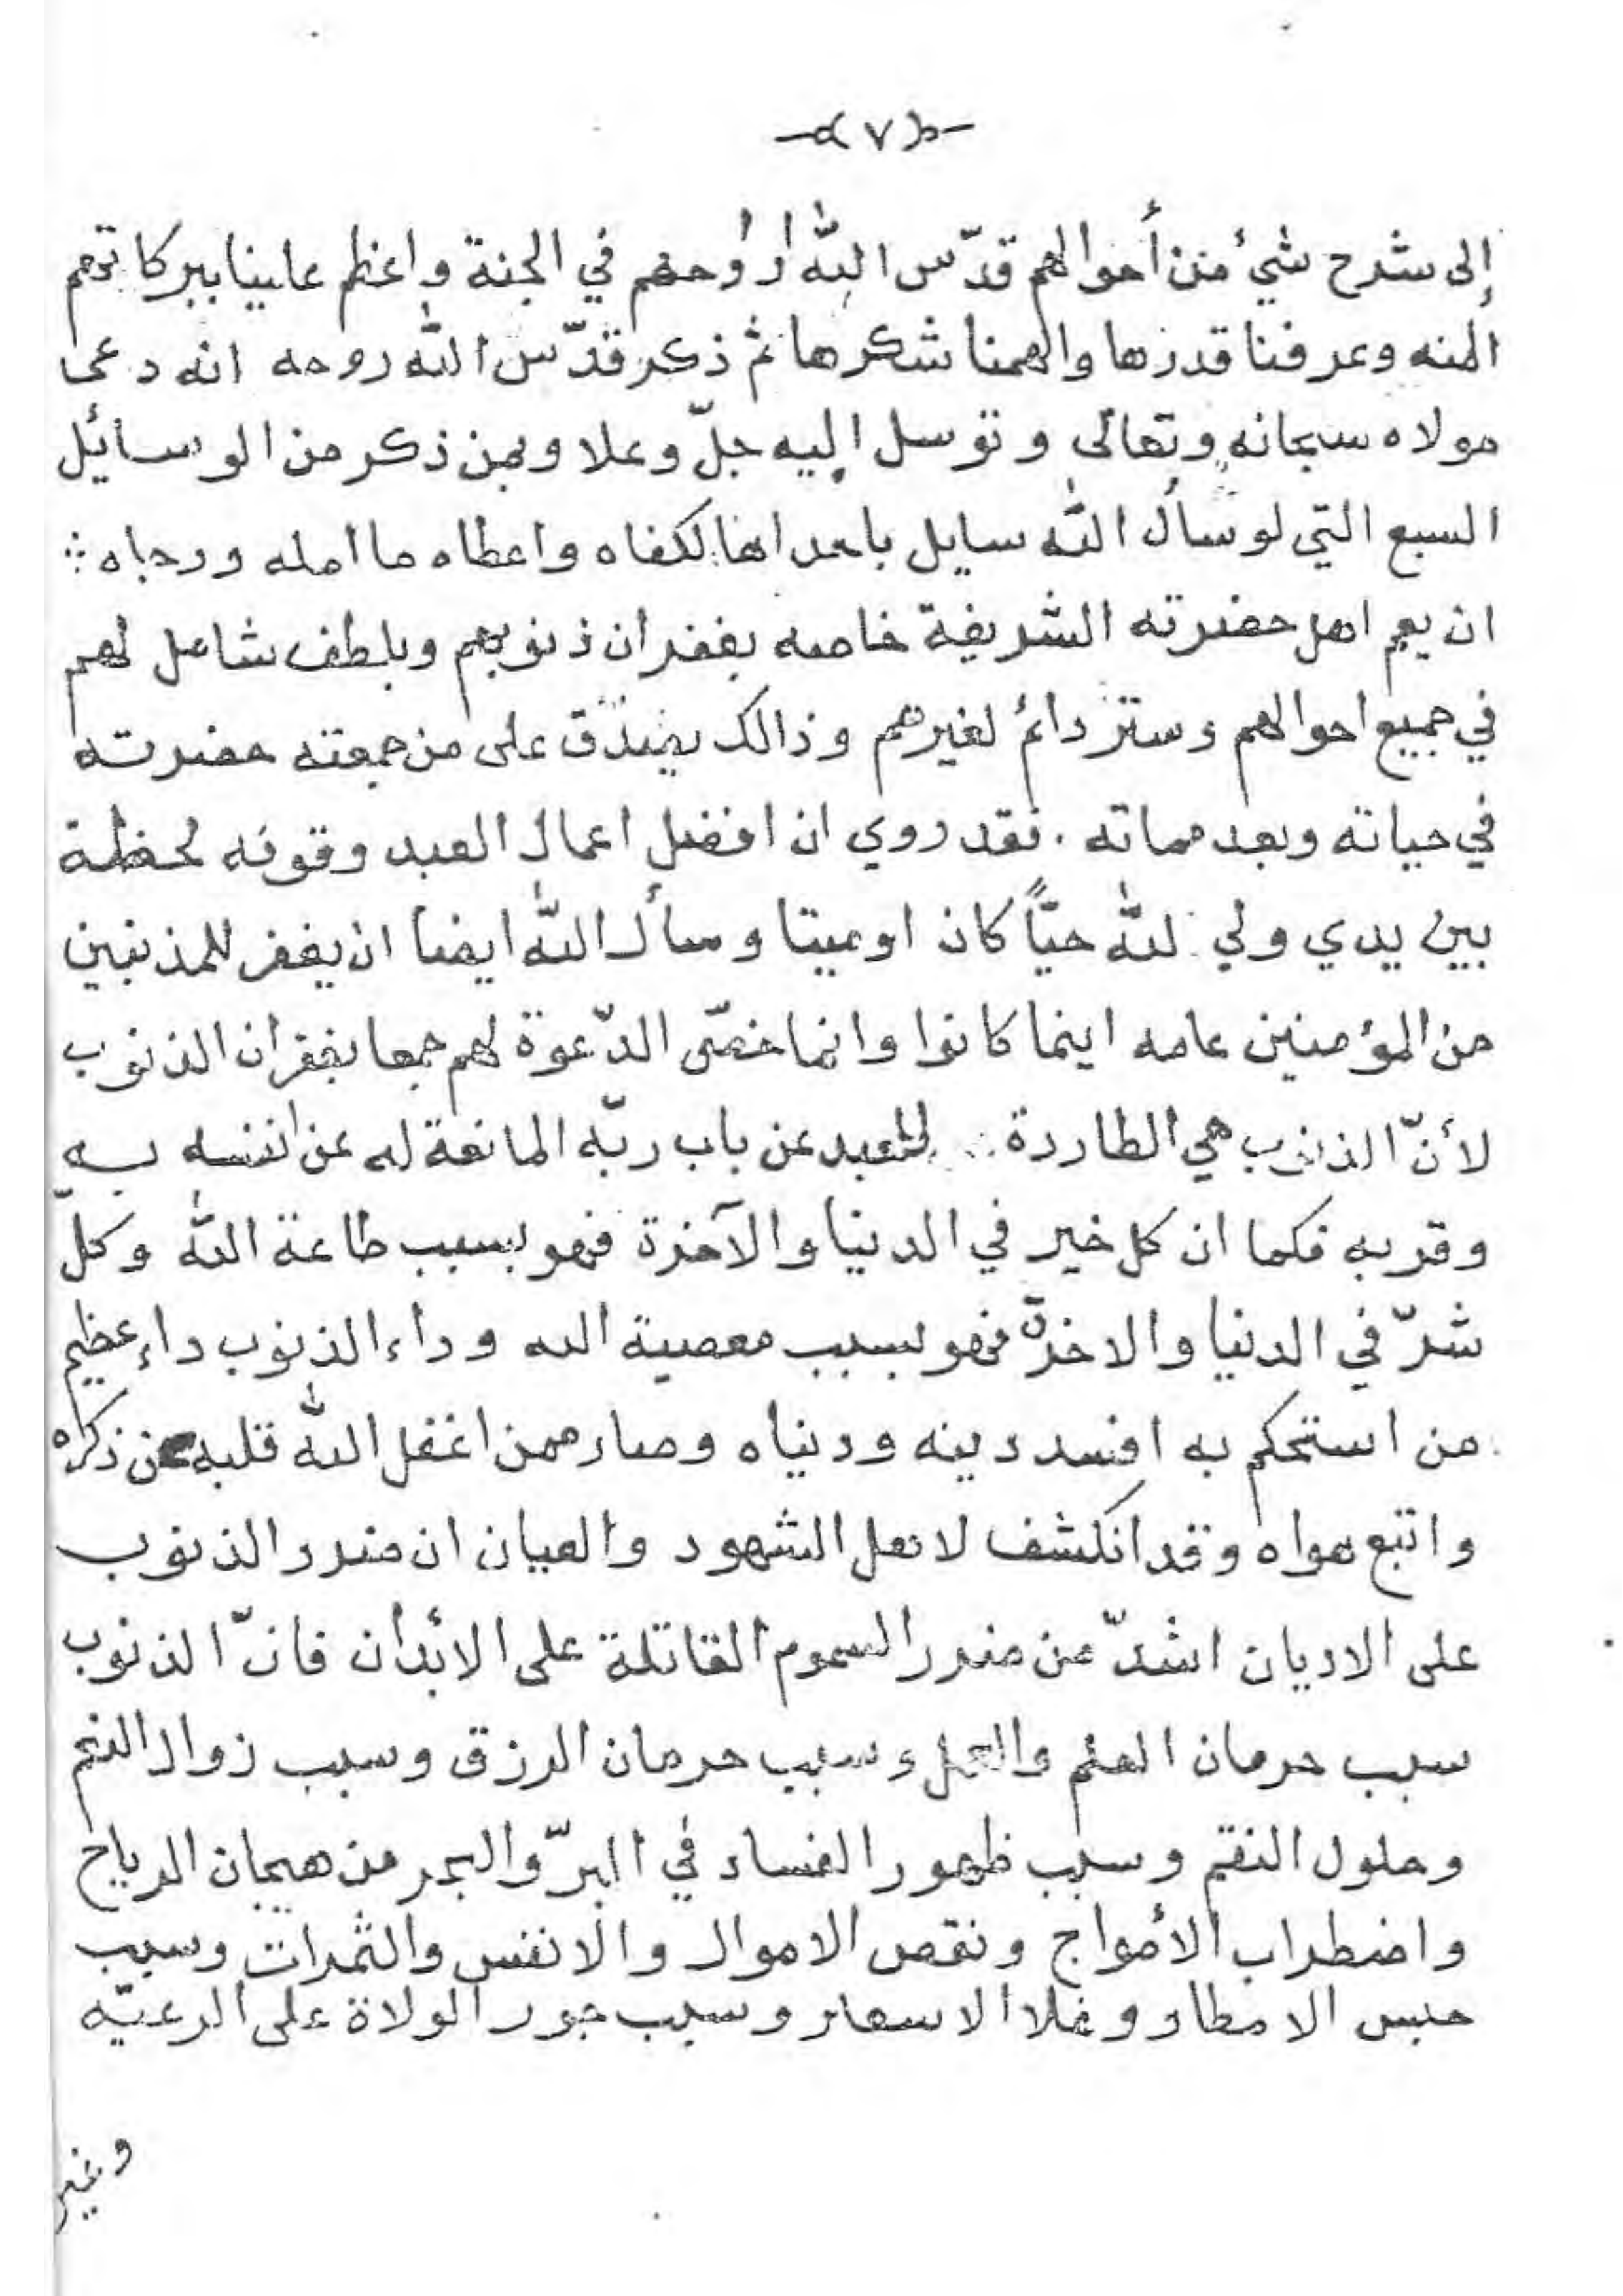 -( ٧ )-
إلى شرح شيئ من أحوالهم قدّس الله أرواحهم في الجنة واعظم علينا ببركاتهم
المنه وعرفنا قدرها والهمنا شكرها ثم ذكر قدّس الله روحه انه دعى
مولاه سبحانه وتعالى وتوسل إليه جلّ وعلا وبمن ذكر من الوسائل
السبع التي لو سأل الله سايل باحداها لكفاه واعطاه ما امله ورجاه
ان يعم اهل حضرته الشريفة خاصه بغفران ذنوبهم وبلطف شامل لهم
في جميع احوالهم وستر دائم لغيرهم وذالك يصدق على من جمعته حضرته
في حياته وبعد مماته . فقد روي ان افضل اعمال العبد وقوفه لحظة
بين يدي ولي لله حيّاً كان او ميتا وسأل الله ايضا ان يغفر للمذنبين
من المؤمنين عامه اينما كانوا وانما خصّ الدّعوة لهم جمعا بغفران الذنوب
لأنّ الذنوب هي الطاردة للعبد عن باب ربّه المانعة له عن انسه به
وقربه فكما ان كل خير في الدنيا والآخرة فهو بسبب طاعة الله وكلّ
شرّ في الدنيا والاخرة فهو بسبب معصية الله وداء الذنوب داء عظيم
من استحكم به افسد دينه ودنياه وصار ممن اغفل الله قلبه عن ذكره
واتبع هواه وقد انكشف لاهل الشهود والعيان ان ضرر الذنوب
على الاديان اشدّ من ضرر السموم القاتلة على الأبدان فانّ الذنوب
سبب حرمان العلم والعمل وسبب حرمان الرزق وسبب زوال النعم
وحلول النقم وسبب ظهور الفساد في البرّ والبحر من هيجان الرياح
واضطراب الأمواج ونقص الاموال والانفس والثمرات وسبب
حبس الامطار وغلا الاسعار وسبب جور الولاة على الرعيّه
وغير